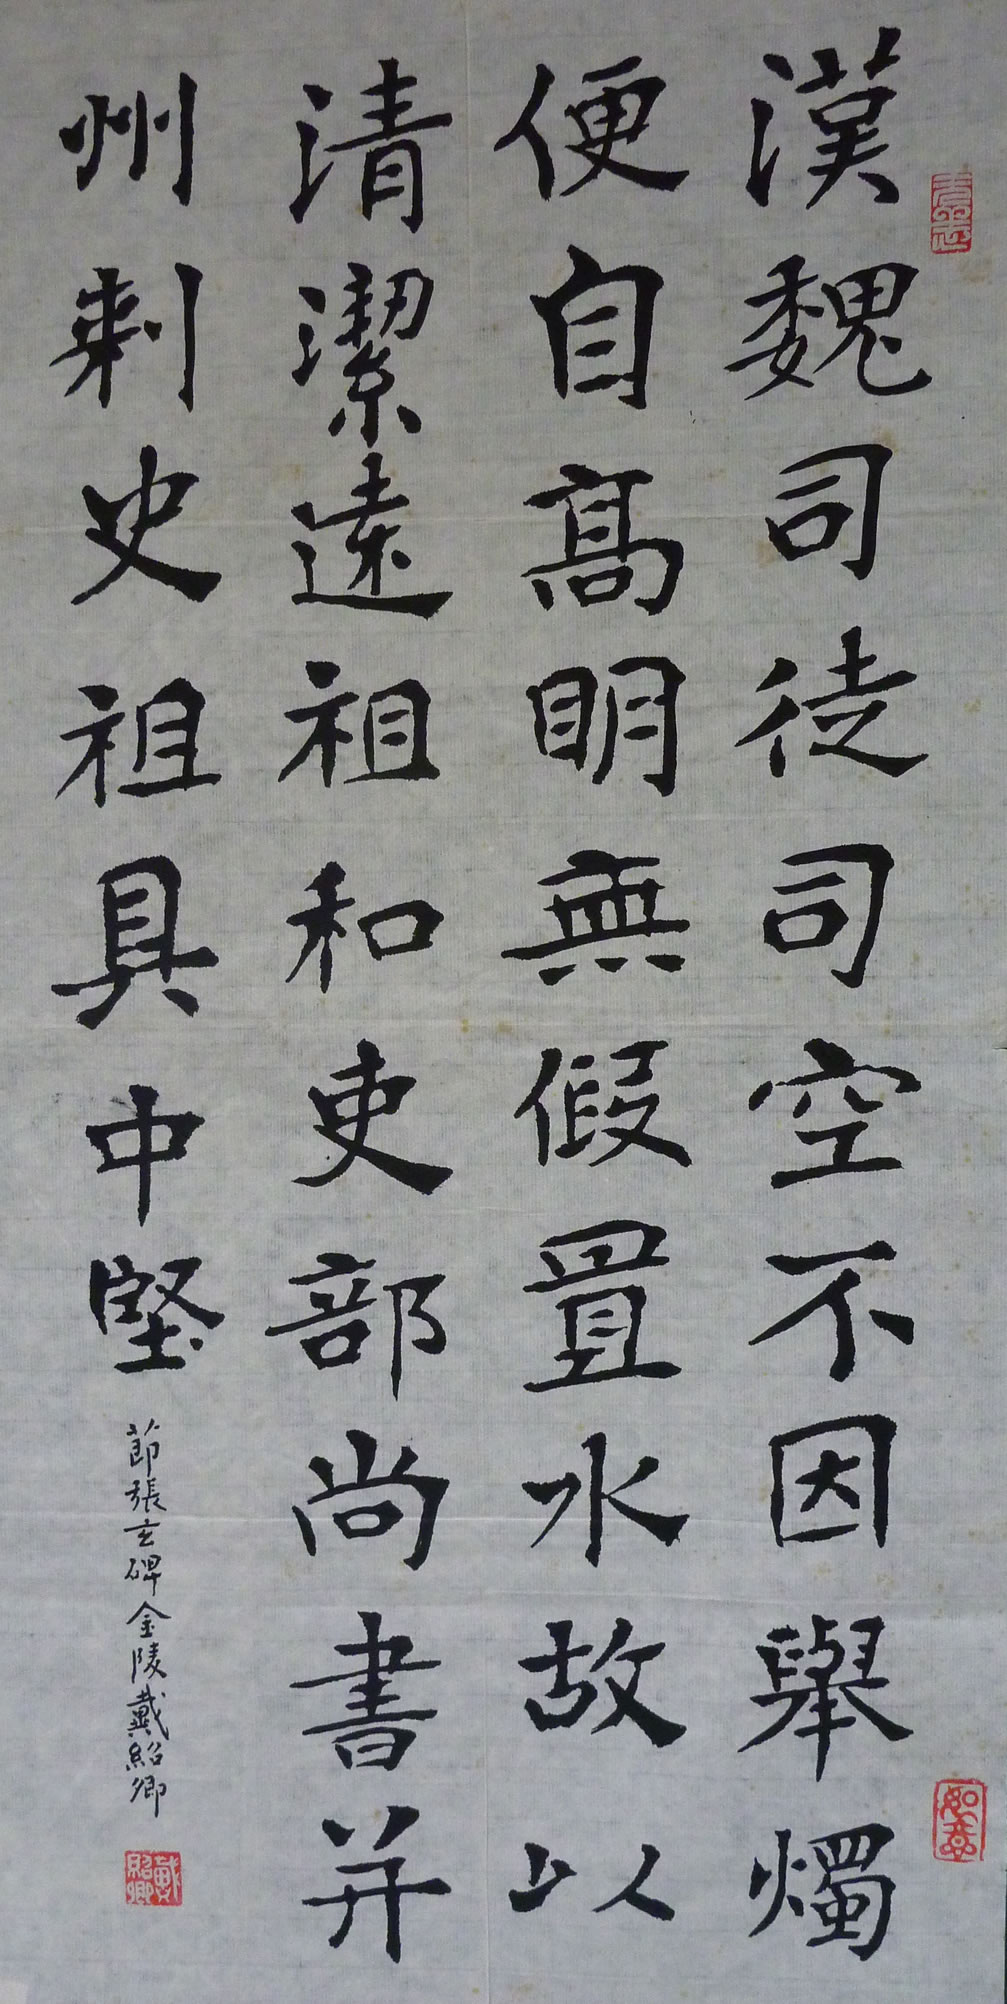 漢魏司徒司空不因舉燭
便自高明無假置水故以
清潔遠祖和吏部尚書并
州刺史祖具中堅
節張玄碑金陵戴紹卿
如意
戴紹卿